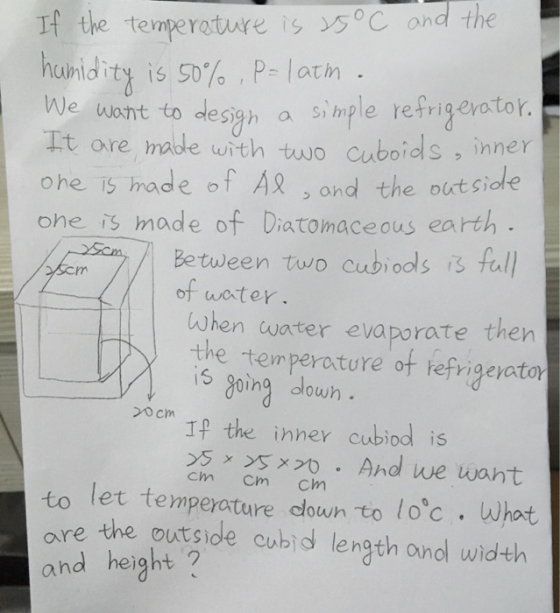 If the temperature is 25°C and the
humidity is 50%, P=1atm.
We want to design a simple refrigerator.
It are made with two cuboids, inner
one is made of Al, and the outside
one is made of Diatomaceous earth.
25cm
25cm
20cm
Between two cubiods is full
of water.
When water evaporate then
the temperature of refrigerator
is going down.
If the inner cubiod is
25 × 25 × 20. And we want
cm cm cm
to let temperature down to 10°c. What
are the outside cubid length and width
and height?